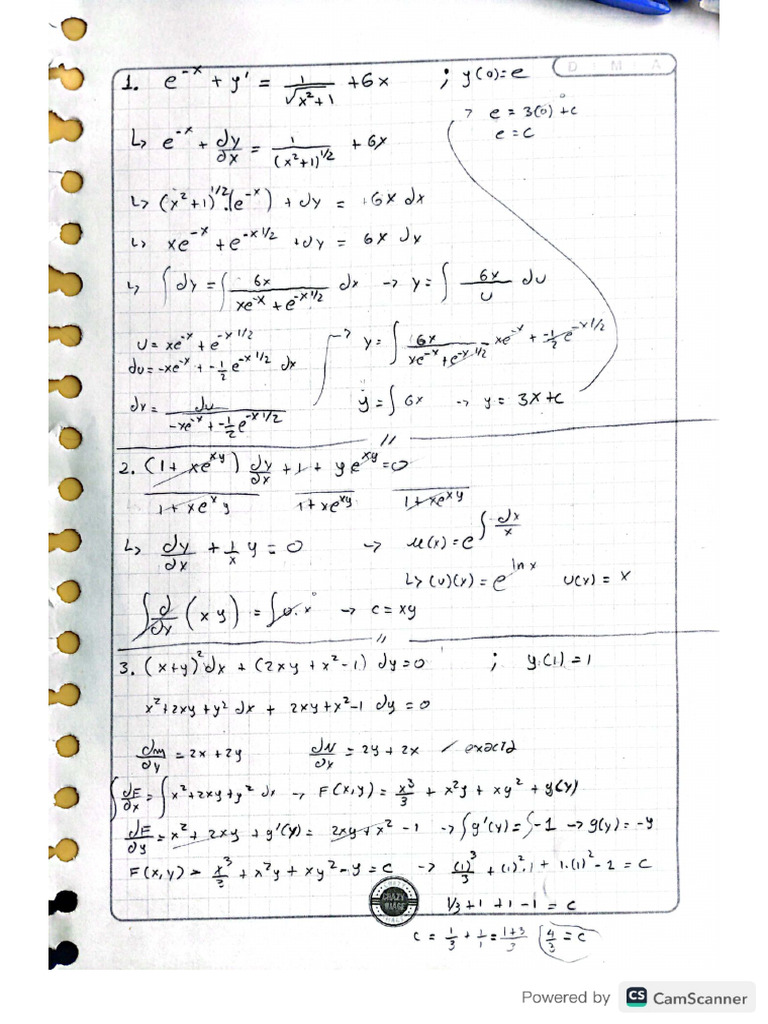 D M A
1. e^-x + y' = 1/√(x²+1) + 6x ; y(0)=e
→ e = 3(0) + c
e = c
↳ e^-x + dy/dx = 1/(x²+1)^1/2 + 6x
↳ (x²+1)^1/2.(e^-x) + dy = 6x dx
↳ xe^-x + e^-x 1/2 + dy = 6x dx
↳ ∫dy = ∫ 6x/(xe^-x + e^-x 1/2) dx → y = ∫ 6x/u du
u = xe^-x + e^-x 1/2
du = -xe^-x + -1/2 e^-x 1/2 dx
→ y = ∫ 6x/(xe^-x + e^-x 1/2) -xe^-x + -1/2 e^-x 1/2
dx = du/(-xe^-x + -1/2 e^-x 1/2)
y = ∫ 6x → y = 3x + c
//
2. (1 + xe^xy) dy/dx + 1 + ye^xy = 0
1 + xe^xy 1 + xe^xy 1 + xe^xy
↳ dy/dx + 1/x y = 0 → u(x) = e^∫dx/x
↳ (u)(x) = e^ln x u(x) = x
∫ d/dx (xy) = ∫0.x → c = xy
//
3. (x+y)² dx + (2xy + x² - 1) dy = 0 ; y(1) = 1
x² + 2xy + y² dx + 2xy + x² - 1 dy = 0
dM/dy = 2x + 2y dN/dx = 2y + 2x / exacta
∫ dF/dx = ∫ x² + 2xy + y² dx → F(x,y) = x³/3 + x²y + xy² + g(y)
dF/dy = x² + 2xy + g'(y) = 2xy + x² - 1 → ∫g'(y) = ∫-1 → g(y) = -y
F(x,y) = x³/3 + x²y + xy² - y = c → (1)³/3 + (1)².1 + 1.(1)² - 1 = c
1/3 + 1 + 1 - 1 = c
c = 1/3 + 1/1 = 1+3/3 4/3 = c
CRAZY IMAGE
Powered by CS CamScanner